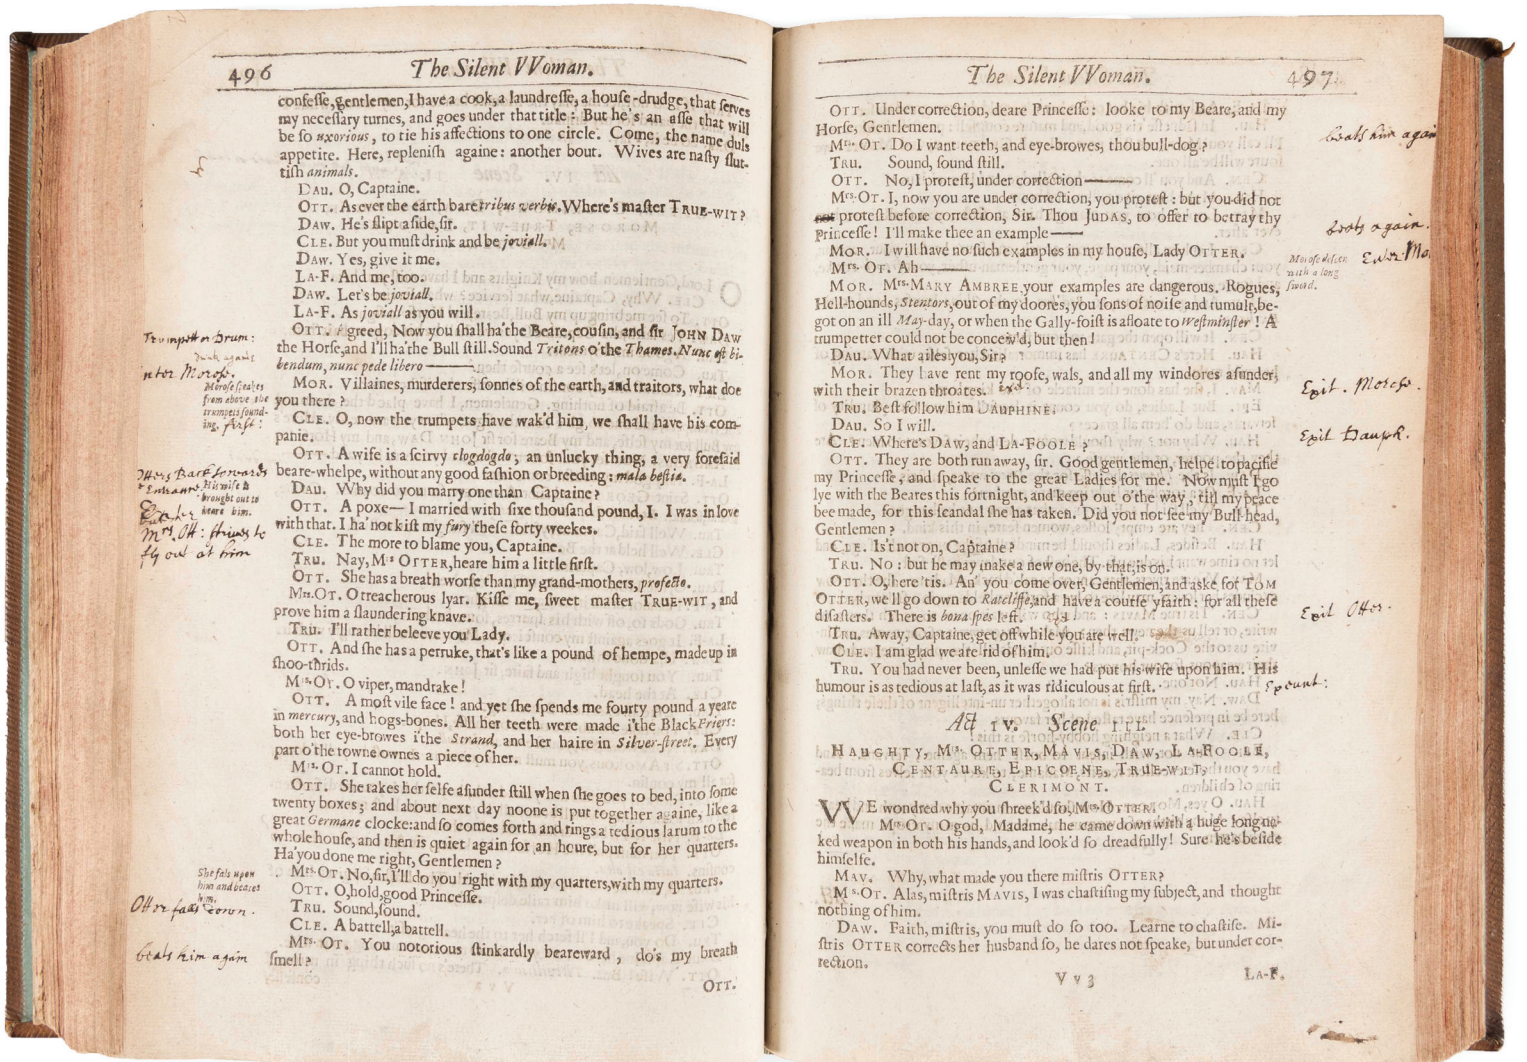 496
The Silent VVoman.
confesse, gentlemen, I have a cook, a laundresse, a house-drudge, that serves
my necessary turnes, and goes under that title: But he's an asse that will
be so uxorious, to tie his affections to one circle. Come, the name duls
appetite. Here, replenish againe: another bout. Wives are nasty slut-
tish animals.
DAU. O, Captaine.
OTT. As ever the earth bare tribus verbis. Where's master TRUE-WIT?
DAW. He's slipt aside, sir.
CLE. But you must drink and be joviall.
DAW. Yes, give it me.
LA-F. And me, too.
DAW. Let's be joviall.
LA-F. As joviall as you will.
OTT. Agreed, Now you shall ha'the Beare, cousin, and sir JOHN DAW
Trumpetts Drum:
the Horse, and I'll ha'the Bull still. Sound Tritons o'the Thames. Nunc est bi-
bendum, nunc pede libero———
nter Morose.
MOR. Villaines, murderers, sonnes of the earth, and traitors, what doe
Morose speakes
from above the
trumpets sound-
ing.
first:
you there?
CLE. O, now the trumpets have wak'd him, we shall have his com-
panie.
OTT. A wife is a scirvy clogdogdo; an unlucky thing, a very foresaid
beare-whelpe, without any good fashion or breeding: mala bestia.
His wife is
brought out to
heare him.
DAU. Why did you marry one than Captaine?
OTT. A poxe— I married with sixe thousand pound, I. I was in love
with that. I ha' not kist my fury these forty weekes.
Mrs Ott: strives to
fly out at him
CLE. The more to blame you, Captaine.
TRU. Nay, Mrs OTTER, heare him a little first.
OTT. She has a breath worse than my grand-mothers, profecto.
Mrs. OT. O treacherous lyar. Kisse me, sweet master TRUE-WIT, and
prove him a slaundering knave.
TRU. I'll rather beleeve you Lady.
OTT. And she has a perruke, that's like a pound of hempe, made up in
shoo-thrids.
Mrs. OT. O viper, mandrake!
OTT. A most vile face! and yet she spends me fourty pound a yeare
in mercury, and hogs-bones. All her teeth were made i'the Black Friers:
both her eye-browes i'the Strand, and her haire in Silver-street. Every
part o'the towne ownes a piece of her.
Mrs. OT. I cannot hold.
OTT. She takes her selfe asunder still when she goes to bed, into some
twenty boxes; and about next day noone is put together againe, like a
great Germane clocke: and so comes forth and rings a tedious larum to the
whole house, and then is quiet again for an houre, but for her quarters.
Ha'you done me right, Gentlemen?
She fals upon
him and beates
him.
Mrs. OT. No, sir, I'll do you right with my quarters, with my quarters.
OTT. O, hold, good Princesse.
Otter falls down.
TRU. Sound, sound.
CLE. A battell, a battell.
Mrs. OT. You notorious stinkardly beareward, do's my breath
beats him again
smell?
OTT.
The Silent VVoman.
497
OTT. Under correction, deare Princesse: looke to my Beare, and my
Horse, Gentlemen.
beats him again
Mrs. OT. Do I want teeth, and eye-browes, thou bull-dog?
TRU. Sound, sound still.
OTT. No, I protest, under correction———
Mrs. OT. I, now you are under correction, you protest: but you did not
not protest before correction, Sir. Thou JUDAS, to offer to betray thy
Princesse! I'll make thee an example——
beats again.
MOR. I will have no such examples in my house, Lady OTTER.
Mrs. OT. Ah———
Morose descen
with a long
sword.
Enter: Mo
MOR. Mrs. MARY AMBREE, your examples are dangerous. Rogues,
Hell-hounds, Stentors, out of my doores, you sons of noise and tumult, be-
got on an ill May-day, or when the Gally-foist is afloate to Westminster! A
trumpetter could not be conceiv'd, but then!
DAU. What ailes you, Sir?
MOR. They have rent my roofe, wals, and all my windores asunder,
with their brazen throates.
Exit.
Exit. Morose.
TRU. Best follow him DAUPHINE.
DAU. So I will.
Exit Dauph.
CLE. Where's DAW, and LA-FOOLE?
OTT. They are both run away, sir. Good gentlemen, helpe to pacifie
my Princesse, and speake to the great Ladies for me. Now must I go
lye with the Beares this fortnight, and keep out o'the way, till my peace
bee made, for this scandal she has taken. Did you not see my Bull-head,
Gentlemen?
CLE. Is't not on, Captaine?
TRU. No: but he may make a new one, by that, is on.
OTT. O, here 'tis. An' you come over, Gentlemen, and aske for TOM
OTTER, we'll go down to Ratcliffe, and have a course yfaith: for all these
disasters. There is bona spes left.
Exit Otter.
TRU. Away, Captaine, get off while you are well.
CLE. I am glad we are rid of him.
TRU. You had never been, unlesse we had put his wife upon him. His
humour is as tedious at last, as it was ridiculous at first.
Exeunt:
Act IV. Scene III.
HAUGHTY, Mrs. OTTER, MAVIS, DAW, LA-FOOLE,
CENTAURE, EPICOENE, TRUE-WIT,
CLERIMONT.
WE wondred why you shreek'd so, Mrs. OTTER.
Mrs OT. O god, Madame, he came down with a huge long na-
ked weapon in both his hands, and look'd so dreadfully! Sure he's beside
himselfe.
MAV. Why, what made you there mistris OTTER?
Mrs. OT. Alas, mistris MAVIS, I was chastising my subject, and thought
nothing of him.
DAW. Faith, mistris, you must do so too. Learne to chastise. Mi-
stris OTTER corrects her husband so, he dares not speake, but under cor-
rection.
Vv3
LA-F.